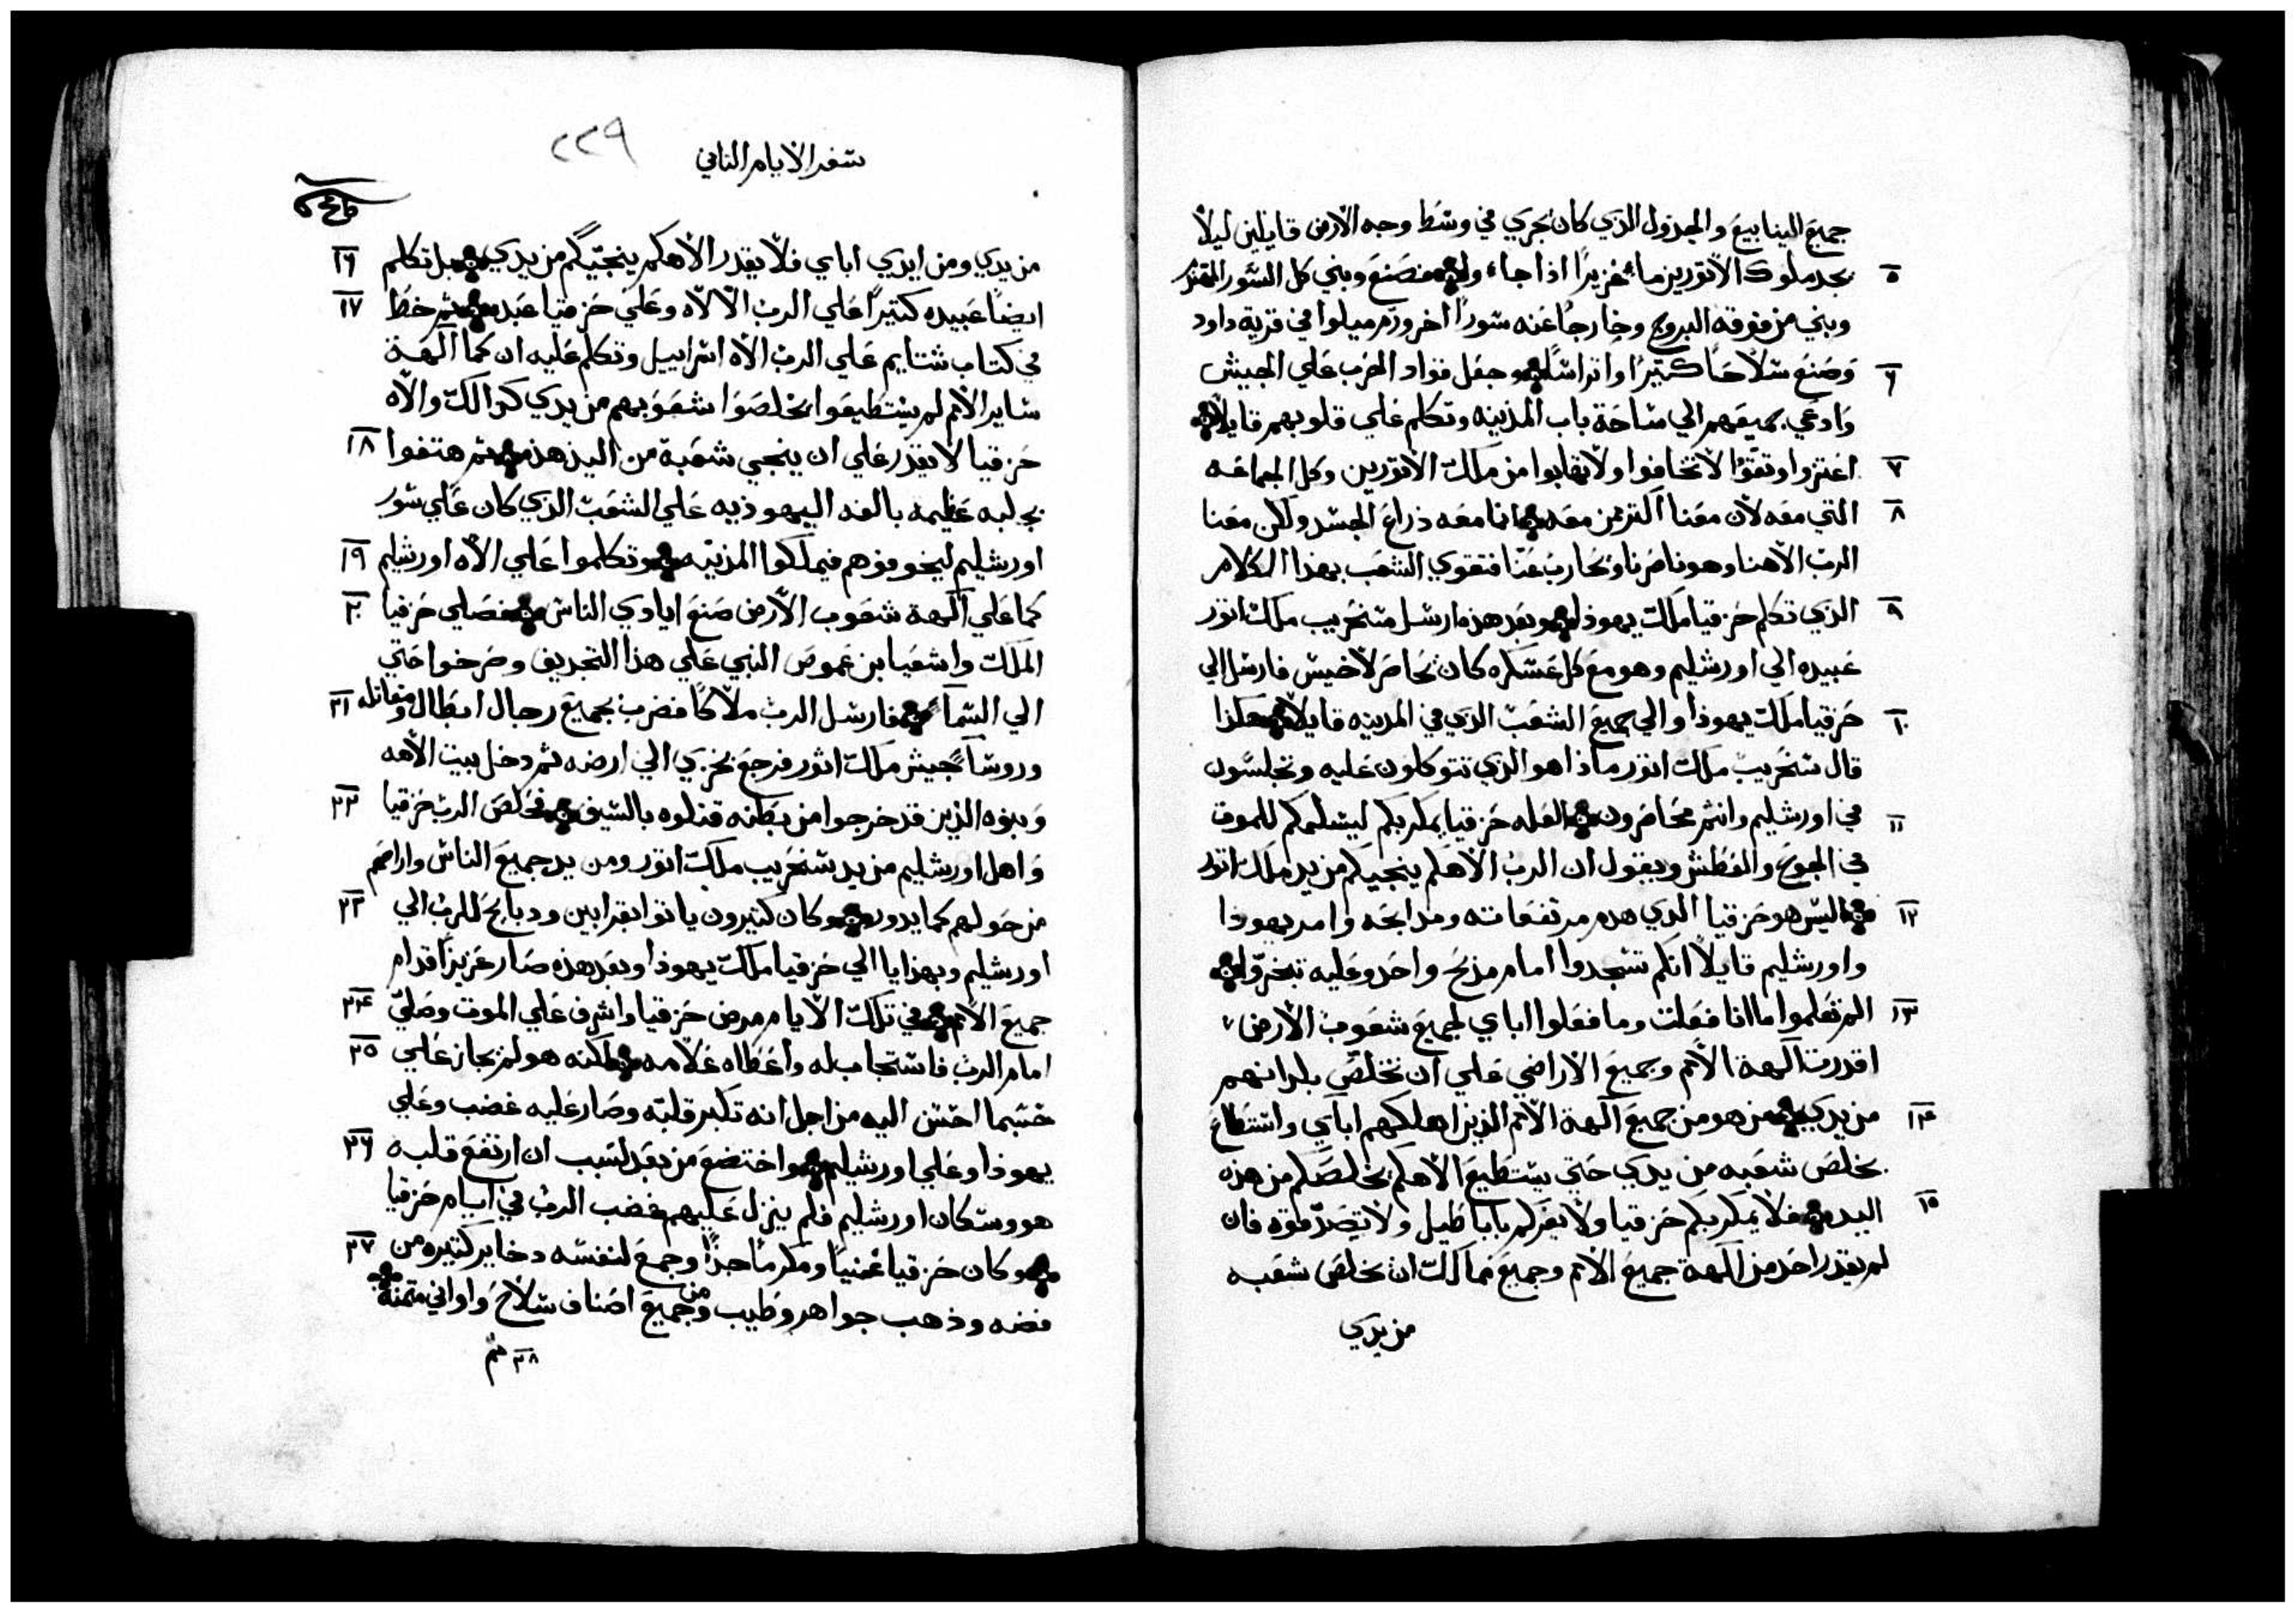 جميع الينابيع والجدول الذي كان يجري في وسط وجه الارض قايلين ليلا
٥ يجد ملوك الاثوريين ماء غزيرًا اذا جاءوا ❖ فصنع وبني كل السور المهدر
وبني من فوقه البروج وخارجًا عنه سورًا اخر ورمم ميلوا في قرية داود
٦ وصنع سلاحًا كثيرًا واتراسًا ❖ وجعل قواد الحرب علي الجيش
وادعي جميعهم الي ساحة باب المدينه وتكلم علي قلوبهم قايلا ❖
٧ اعتزوا وتقوا لا تخافوا ولا تهابوا من ملك الاثوريين وكل الجماعه
٨ التي معه لان معنا اكثر من معه ❖ انما معه ذراع الجسد ولكن معنا
الرب الاهنا وهو ناصرنا ويحارب عنا فتقوي الشعب بهذا الكلام
٩ الذي تكلم حزقيا ملك يهوذا ❖ وبعد هذه ارسل سنحريب ملك اثور
عبيده الي اورشليم وهو مع كل عسكره كان يحاصر لاخيس فارسل الي
١٠ حزقيا ملك يهوذا والي جميع الشعب الذي في المدينه قايلا ❖ هكذا
قال سنحريب ملك اثور ماذا هو الذي تتوكلون عليه وتجلسون
١١ في اورشليم وانتم محاصرون ❖ العله حزقيا يمكر بكم ليسلمكم للموت
في الجوع والعطش ويقول ان الرب الاهكم ينجيكم من يد ملك اثور
١٢ ❖ اليس هو حزقيا الذي هدم مرتفعاته ومذابحه وامر يهوذا
واورشليم قايلا انكم تسجدوا امام مذبح واحد وعليه تبخروا ❖
١٣ الم تعلموا ما انا فعلت وما فعلوا اباي لجميع شعوب الارض
اقدرت الهة الامم وجميع الاراضي علي ان تخلص بلدانهم
١٤ من يدي ❖ من هو من جميع الهة الامم الذين اهلكهم اباي واستطاع
يخلص شعبه من يدي حتي يستطيع الاهكم يخلصكم من هذه
١٥ اليد ❖ فلا يمكر بكم حزقيا ولا يغركم باباطيل ولا تصدقوه فان
لم يقدر احد من الهة جميع الامم وجميع ممالك ان يخلص شعبه
من يدي
سفر الايام الثاني ٢٢٩
من يدي ومن ايدي اباي فلا يقدر الاهكم ينجيكم من يدي ❖ بل تكلم ١٦
ايضا عبيده كثيرًا علي الرب الالاه وعلي حزقيا عبده ❖ ثم خط ١٧
في كتاب شتايم علي الرب الاه اسراييل وتكلم عليه ان كما الهة
ساير الامم لم يستطيعوا يخلصوا شعوبهم من يدي كذالك والاه
حزقيا لا يقدر علي ان ينجي شعبة من اليد هذه ❖ ثم هتفوا ١٨
بجلبه عظيمه بالغه اليهوذيه علي الشعب الذي كان علي سور
اورشليم ليخوفوهم فيملكوا المدينه ❖ وتكلموا علي الاه اورشليم ١٩
كما علي الهة شعوب الارض صنع ايادي الناس ❖ فصلي حزقيا ٢٠
الملك واشعيا بن عموص النبي علي هذا التجديف وصرخوا حتي
الي السما ❖ فارسل الرب ملاكًا فضرب جميع رجال ابطال ومقاتله ٢١
وروسا جيش ملك اثور فرجع بخزي الي ارضه ثم دخل بيت الاهه
وبنوه الذين قد خرجوا من بطنه قتلوه بالسيف ❖ فخلص الرب حزقيا ٢٢
واهل اورشليم من يد سنحريب ملك اثور ومن يد جميع الناس واراحهم
من حولهم كما يدور ❖ وكان كثيرون ياتوا بقرابين ودبايح للرب الي ٢٣
اورشليم وبهذايا الي حزقيا ملك يهوذا وبعد هذه صار عزيزًا قدام
جميع الامم ❖ في تلك الايام مرض حزقيا واشرف علي الموت وصلي ٢٤
امام الرب فاستجاب له واعطاه علامه ❖ لكنه هو لم يجاز علي ٢٥
حسبما احسن اليه من اجل انه تكبر قلبه وصار عليه غضب وعلي
يهوذا وعلي اورشليم ❖ واختضع من بعد لسبب ان ارتفع قلبه ٢٦
هو وسكان اورشليم فلم ينزل عليهم غضب الرب في ايام حزقيا
❖ وكان حزقيا غنيًا ومكرمًا جدًا وجمع لنفسه دخاير كثيره من ٢٧
فضه وذهب جواهر وطيب ومن جميع اصناف سلاح واواني مثمنة ❖
٢٨ ثم